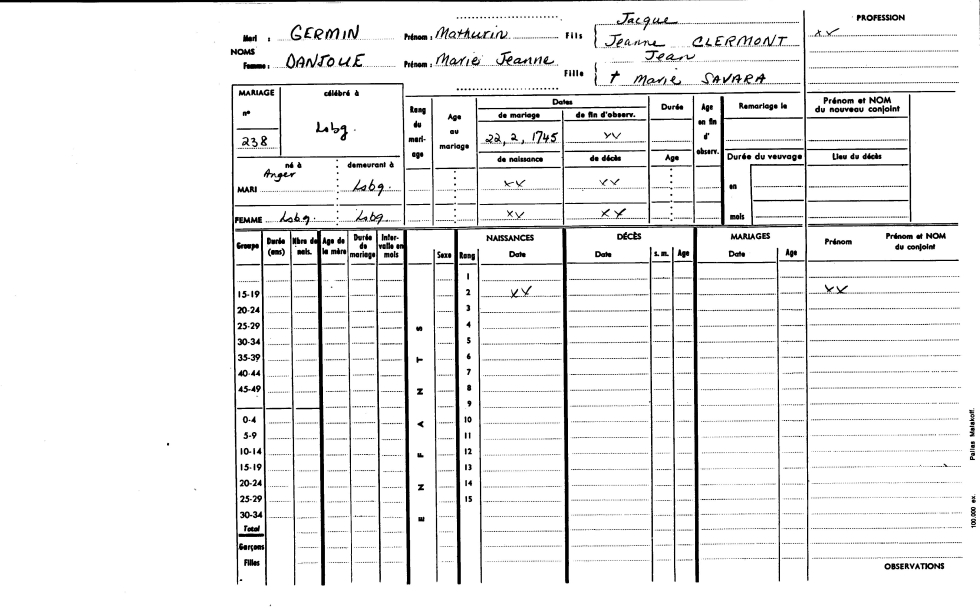 Jacque
PROFESSION
Mari : GERMIN Prénom : Mathurin Fils Jeanne CLERMONT
xx
NOMS
Jean
Femme : DANJOUE Prénom : Marie Jeanne Fille
† Marie SAVARA
MARIAGE célébré à
n°
238 Lsbg.
Rang du mari-age
Age au mariage
Dates
de mariage de fin d'observ.
22, 2, 1745 xx
de naissance de décès
Durée
Age
Age en fin d' observ.
Remariage le
Prénom et NOM du nouveau conjoint
Durée du veuvage
Lieu du décès
en
mois
né à demeurant à
Anger
MARI Lsbg. xx xx
FEMME Lsbg. Lsbg xx xx
Groupe Durée (ans) Nbre de nais. Age de la mère Durée de mariage Inter-valle en mois
ENFANTS
Sexe Rang
NAISSANCES
Date
DÉCÈS
Date s. m. Age
MARIAGES
Date Age
Prénom
Prénom et NOM du conjoint
1
15-19 2 xx xx
20-24 3
25-29 4
30-34 5
35-39 6
40-44 7
45-49 8
9
0-4 10
5-9 11
10-14 12
15-19 13
20-24 14
25-29 15
30-34
Total
Garçons
Filles
OBSERVATIONS
100.000 ex. Pallas Malakoff.